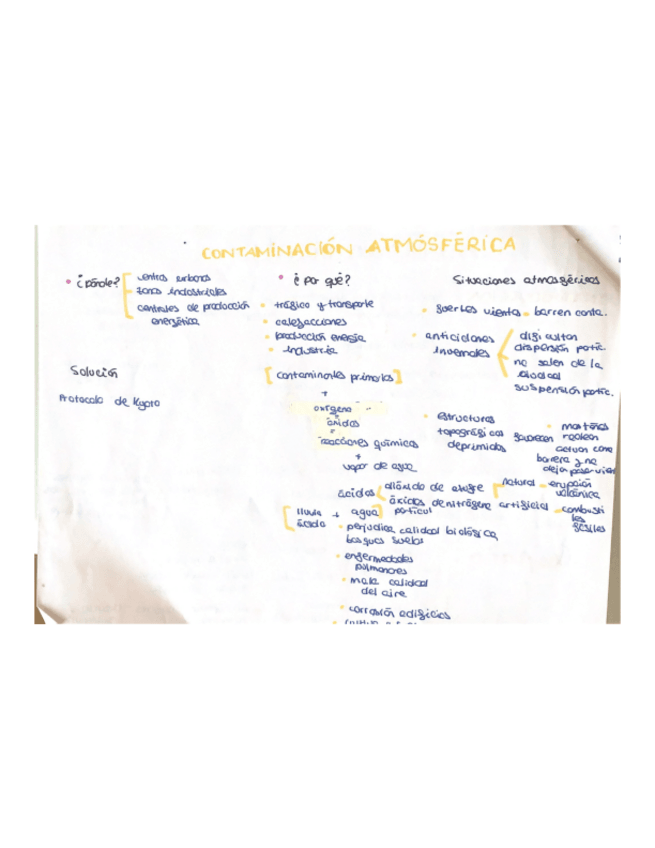 CONTAMINACIÓN ATMÓSFÉRICA
• ¿Dónde?
centros urbanos
zonas industriales
centrales de producción
energética
Solución
Protocolo de Kyoto
• ¿Por qué?
• tráfico y transporte
• calefacciones
• producción energía
• industria
[contaminantes primarios]
+
oxígeno
óxidos
reacciones químicas
+
vapor de agua
ácidos
dióxido de azufre
natural • erupción
volcánica
óxidos de nitrógeno artificial • combusti
bles
fósiles
[lluvia + agua]
ácida
• perjudica calidad biológica
bosques suelos
• enfermedades
pulmonares
• mala calidad
del aire
• corrosión edificios
Situaciones atmosféricas
• fuertes vientos • barren conta.
• anticiclones
invernales
dificultan
dispersión partic.
no salen de la
ciudad
suspensión partic.
• estructuras
topográficas favorecen
deprimidas
• montañas
rodean
actúan como
barrera y no
dejan pasar vien